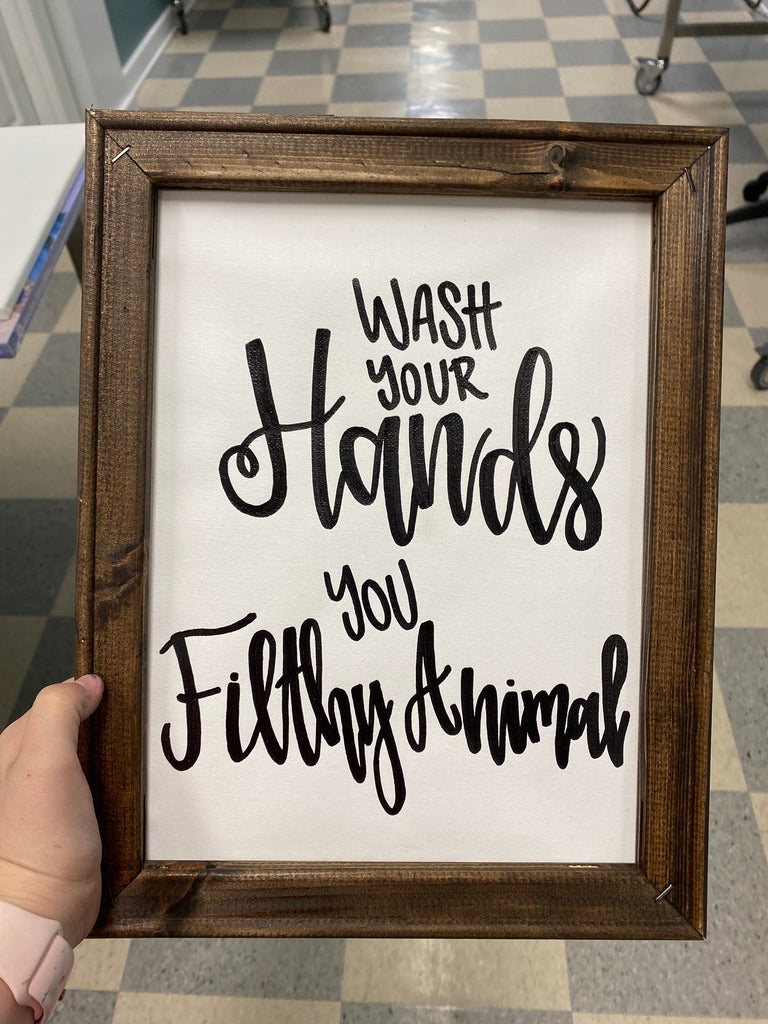 WASH
YOUR
Hands
YOU
Filthy Animal